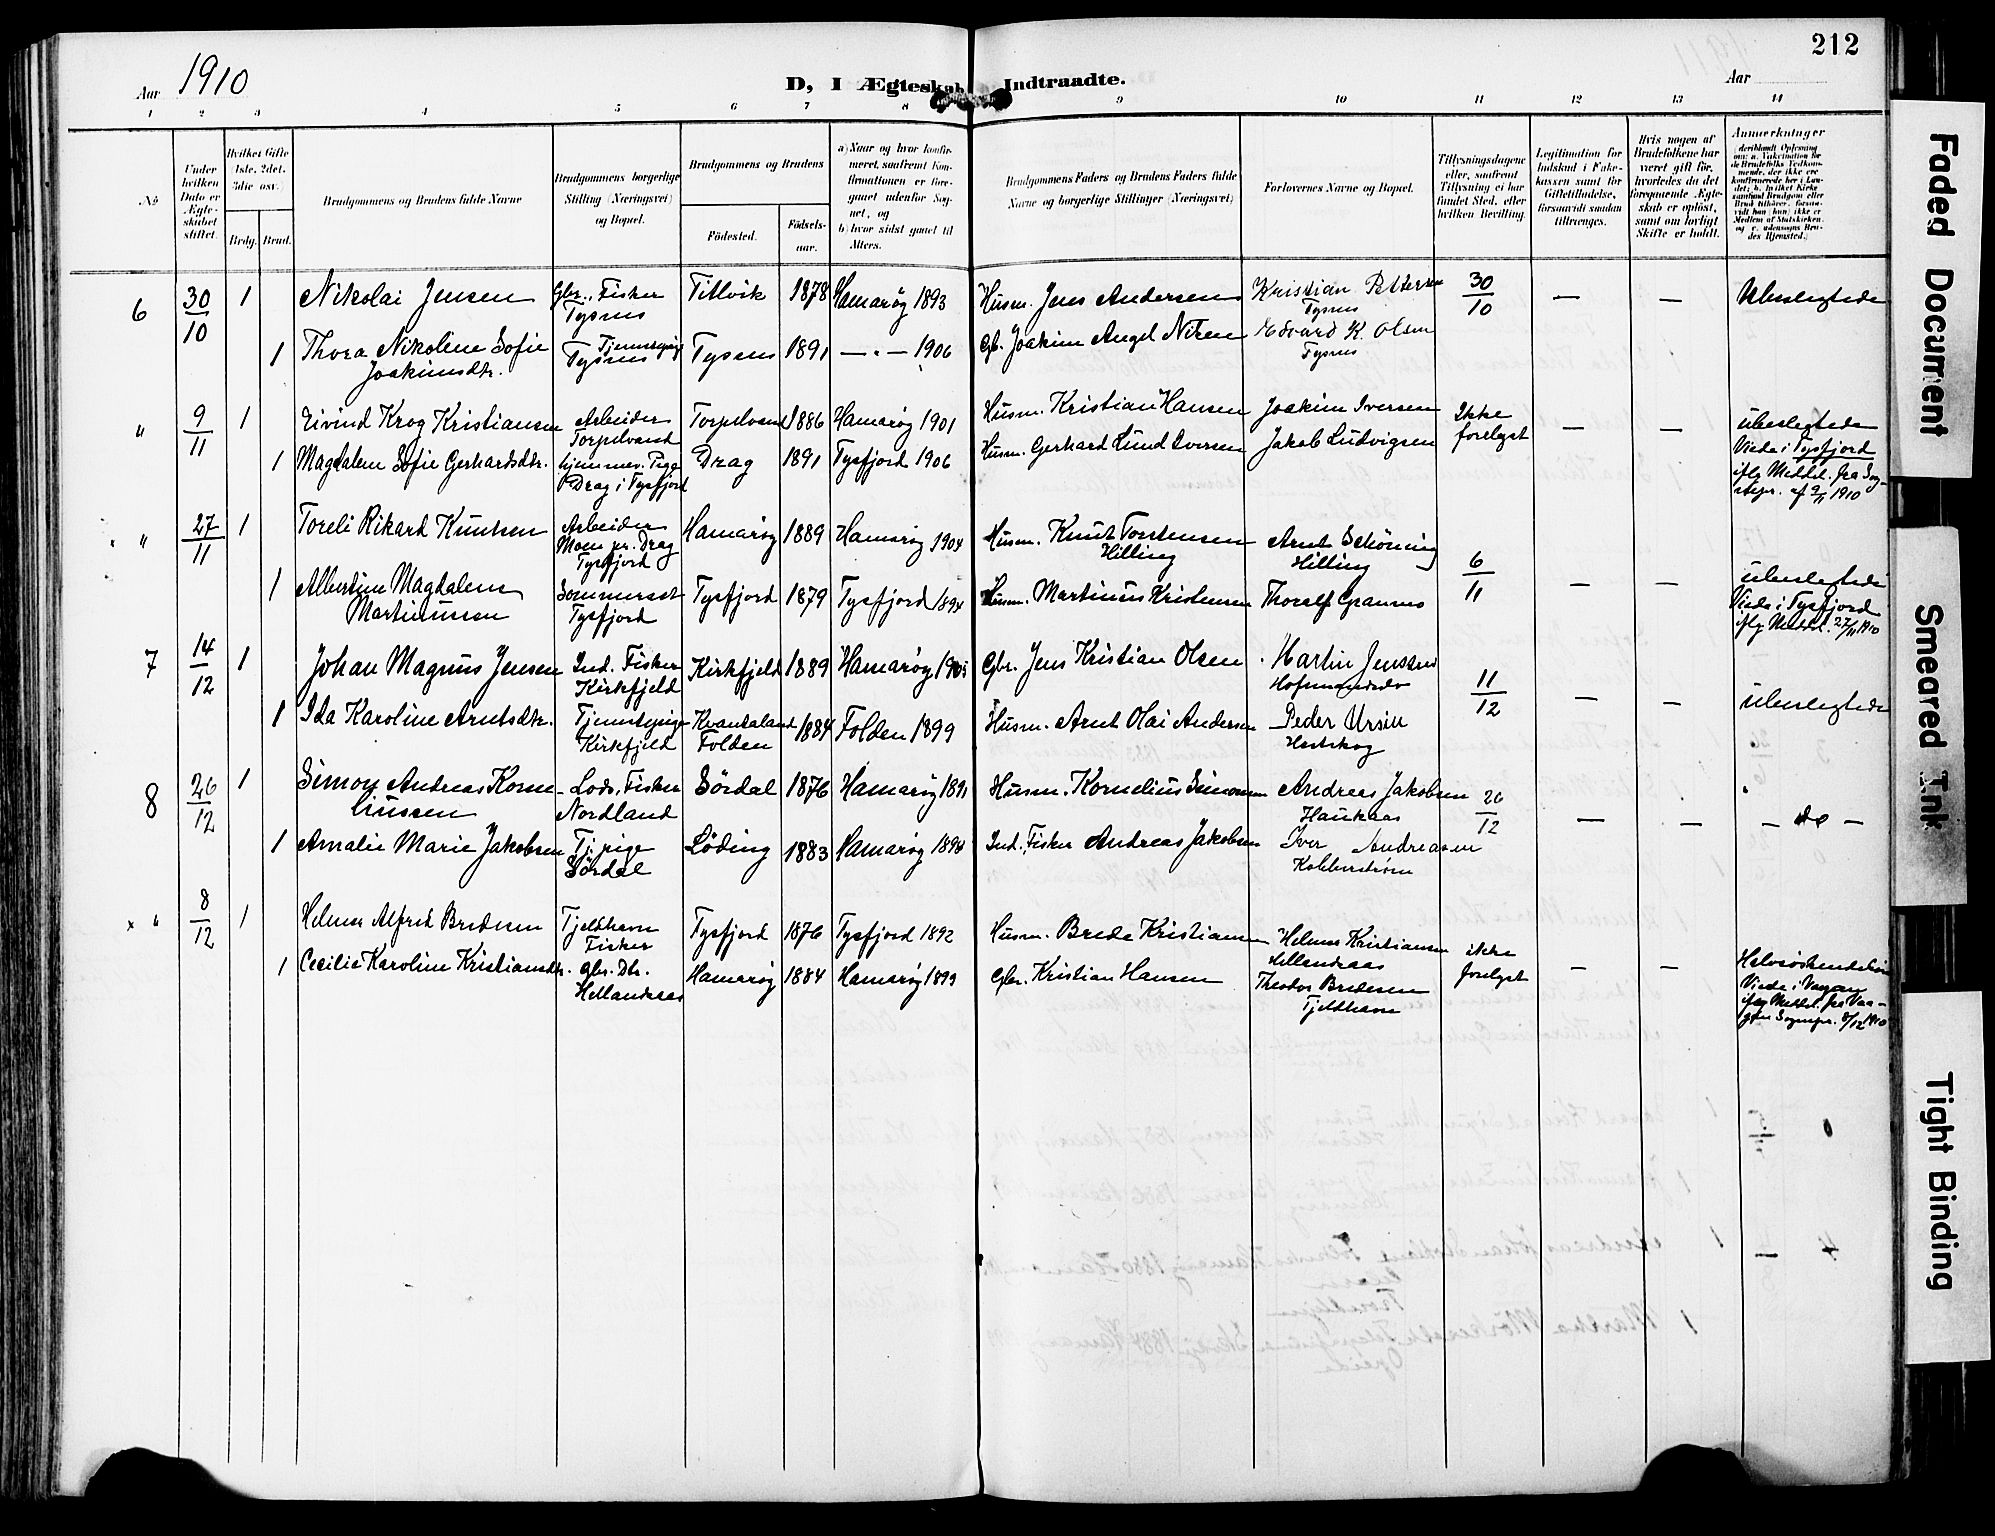 212
Aar 1910
D, I Ægteskab Indtraadte.
Aar
1 2 3 4 5 6 7 8 9 10 11 12 13 14
No
Under hvilken Dato er Ægteskabet stiftet.
Hvilket Gifte (1ste, 2det, 3die osv.)
Brdg. Brud.
Brudgommens og Brudens fulde Navne
Brudgommens borgerlige Stilling (Næringsvei) og Bopæl.
Brudgommens og Brudens
Fødested.
Fødselsaar.
a) Naar og hvor konfirmeret, saafremt Konfirmationen er foregaaet udenfor Sognet, og
b) hvor sidst gaaet til Alters.
Brudgommens Faders og Brudens Faders fulde Navne og borgerlige Stillinger (Næringsvei)
Forlovernes Navne og Bopæl.
Tillysningsdagene eller, saafremt Tillysning ei har fundet Sted, efter hvilken Bevilling.
Legitimation for Indskud i Enkekassen samt for Giftetilladelse, forsaavidt saadan tiltrænges.
Hvis nogen af Brudefolkene har været gift før, hvorledes da det foregaaende Ægteskab er opløst, samt om lovligt Skifte er holdt.
Anmærkninger
6 30/10 1 Nikolai Jensen Gbr., Fisker Tysnes Tillvik 1878 Hamarøy 1893 Husm. Jens Andersen Kristian Pettersen Tysnes 30/10 — — Ubeslegtede
1 Thora Nikoline Sofie Joakimsdtr. Tjenestepige Tysnes Tysnes 1891 — " — 1906 Gb. Joakim Angel Nilsen Edvard K. Olsen Tysnes
" 9/11 1 Eivind Krog Kristiansen Arbeider Torpelvand Torpelvand 1886 Hamarøy 1901 Husm. Kristian Hansen Joakim Iversen Ikke forelyst — — ubeslegtede
1 Magdalene Sofie Gerhardsdtr. hjemmev. Pige Drag i Tysfjord Drag 1891 Tysfjord 1906 Husm. Gerhard Lund Iversen Jakob Ludvigsen
Viede i Tysfjord
iflg Meddel. fra Sog-
nepr. af 9/11 1910
× " 27/11 1 Toreli Rikard Knutsen Arbeider Moen pr. Drag Tysfjord Hamarøy 1889 Hamarøy 1904 Husm. Knut Torstensen Hilling Arnt Schøning Hilling 6/11 — — ubeslegtede
1 Albertine Magdalene Martinussen Sommerset Tysfjord Tysfjord 1879 Tysfjord 1894 Husm. Martinus Kristensen Thoralf
Viede i Tysfjord
iflg Meddel. 27/11 1910
7 14/12 1 Johan Magnus Jensen Ind. Fisker Kirkfjeld Kirkfjeld 1889 Hamarøy Gbr. Jens Kristian Olsen Martin Jenssen 11/12 — — ubeslegtede
1 Ida Karoline Arntsdtr. Tjenestepige Kirkfjeld Folden 1884 Folden 1899 Husm. Arnt Olai Andersen Peder Ursin
8 26/12 1 Simon Andreas Korneliussen Lods. Fisker Nordland Sørdal 1876 Hamarøy 1891 Husm. Kornelius Simonsen Andreas Jakobsen Haukaas 26/12 — — — do —
1 Amalie Marie Jakobsen Tj. pige Sørdal Løding 1883 Hamarøy 1898 Ind. Fisker Andreas Jakobsen Iver Andreasen Kobberstrøm
× " 8/12 1 Helmer Alfred Bredesen Tjeldhavn Fisker Tysfjord 1876 Tysfjord 1892 Husm. Brede Kristiansen Helmer Kristiansen Hellandsaas ikke forelyst — —
1 Cecilie Karoline Kristiansdtr. Gbr. Dtr. Hellandsaas Hamarøy 1884 Hamarøy 1899 Gbr. Kristian Hansen Theodor Bredesen Tjeldhavn
Viede i Vagan
iflg Meddel. fra Vaa-
gan Sognepr. 8/12 1910
Faded Document
Smeared Ink
Tight Binding